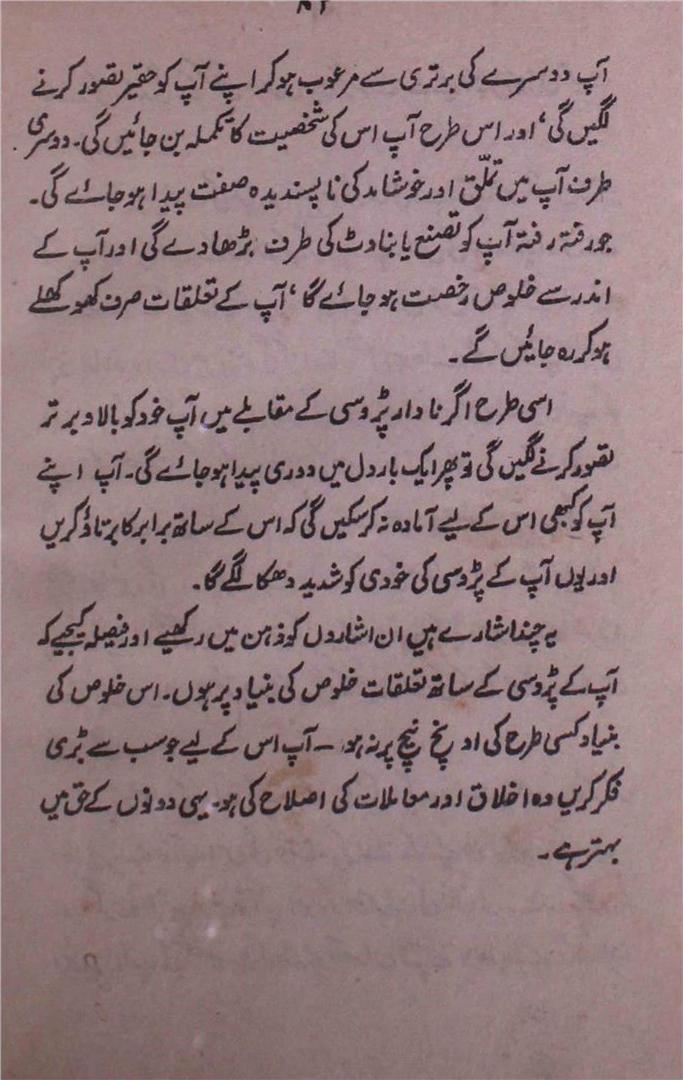 آپ دوسرے کی برتری سے مرعوب ہوکر اپنے آپ کو حقیر تصور کرنے
لگیں گی، اور اس طرح آپ اس کی شخصیت کا تکملہ بن جائیں گی۔ دوسری
طرف آپ میں تملّق اور خوشامد کی ناپسندیدہ صفت پیدا ہوجائے گی۔
جو رفتہ رفتہ آپ کو تصنع یا بناوٹ کی طرف بڑھا دے گی اور آپ کے
اندر سے خلوص رخصت ہوجائے گا، آپ کے تعلقات صرف کھوکھلے
ہوکر رہ جائیں گے۔
اسی طرح اگر نادار پڑوسی کے مقابلے میں آپ خود کو بالا و برتر
تصور کرنے لگیں گی تو پھر ایک بار دل میں دوری پیدا ہوجائے گی۔ آپ اپنے
آپ کو کبھی اس کے لیے آمادہ نہ کرسکیں گی کہ اس کے ساتھ برابر کا برتاؤ کریں
اور یوں آپ کے پڑوسی کی خودی کو شدید دھکا لگے گا۔
یہ چند اشارے ہیں ان اشاروں کو ذہن میں رکھیے اور فیصلہ کیجیے کہ
آپ کے پڑوسی کے ساتھ تعلقات خلوص کی بنیاد پر ہوں۔ اس خلوص کی
بنیاد کسی طرح کی اونچ نیچ پر نہ ہو۔ آپ اس کے لیے جو سب سے بڑی
فکر کریں وہ اخلاق اور معاملات کی اصلاح کی ہو۔ یہی دونوں کے حق میں
بہتر ہے۔